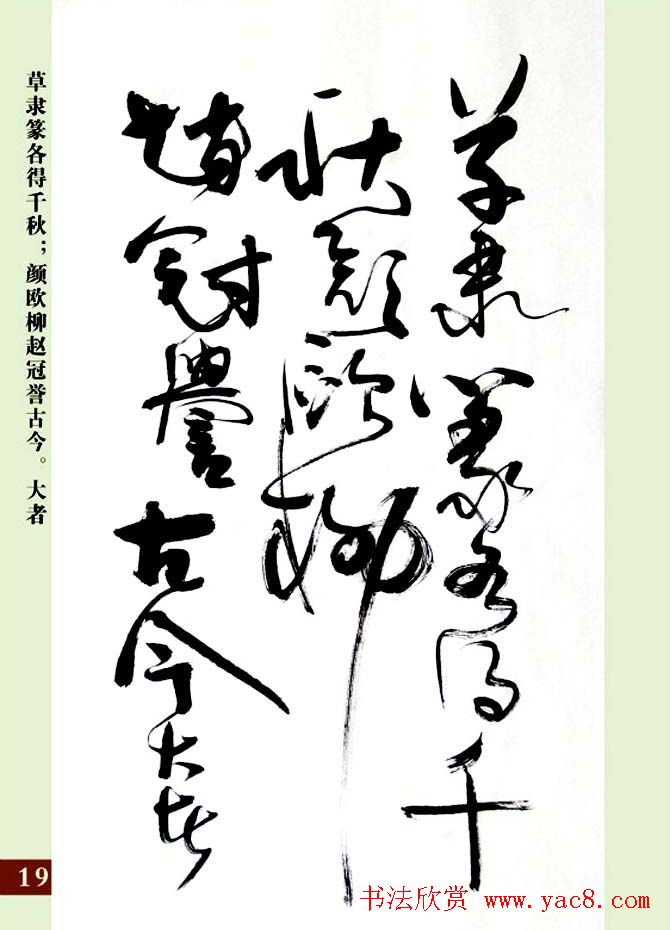 草隶篆各得千
秋颜欧柳
赵冠誉古今大者
草隶篆各得千秋；颜欧柳赵冠誉古今。大者
19
书法欣赏 www.yac8.com